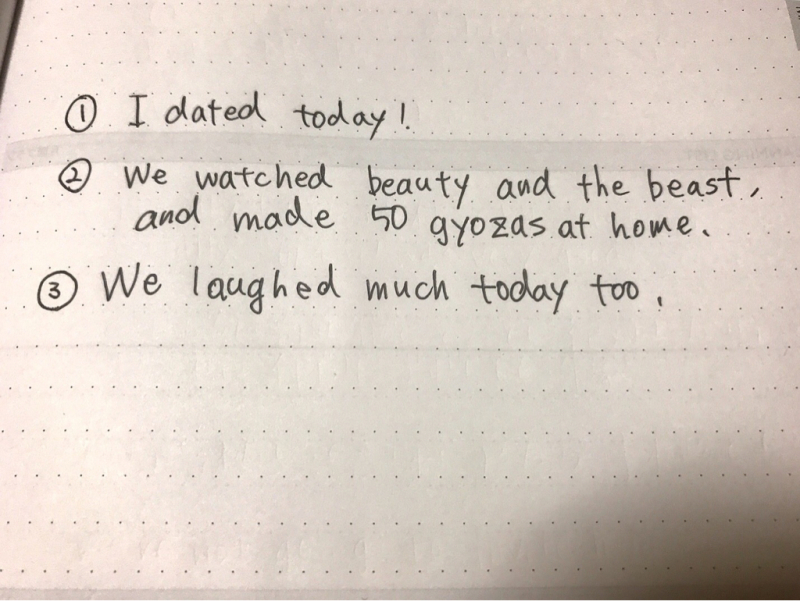 ① I dated today!
② We watched beauty and the beast,
and made 50 gyozas at home.
③ We laughed much today too.